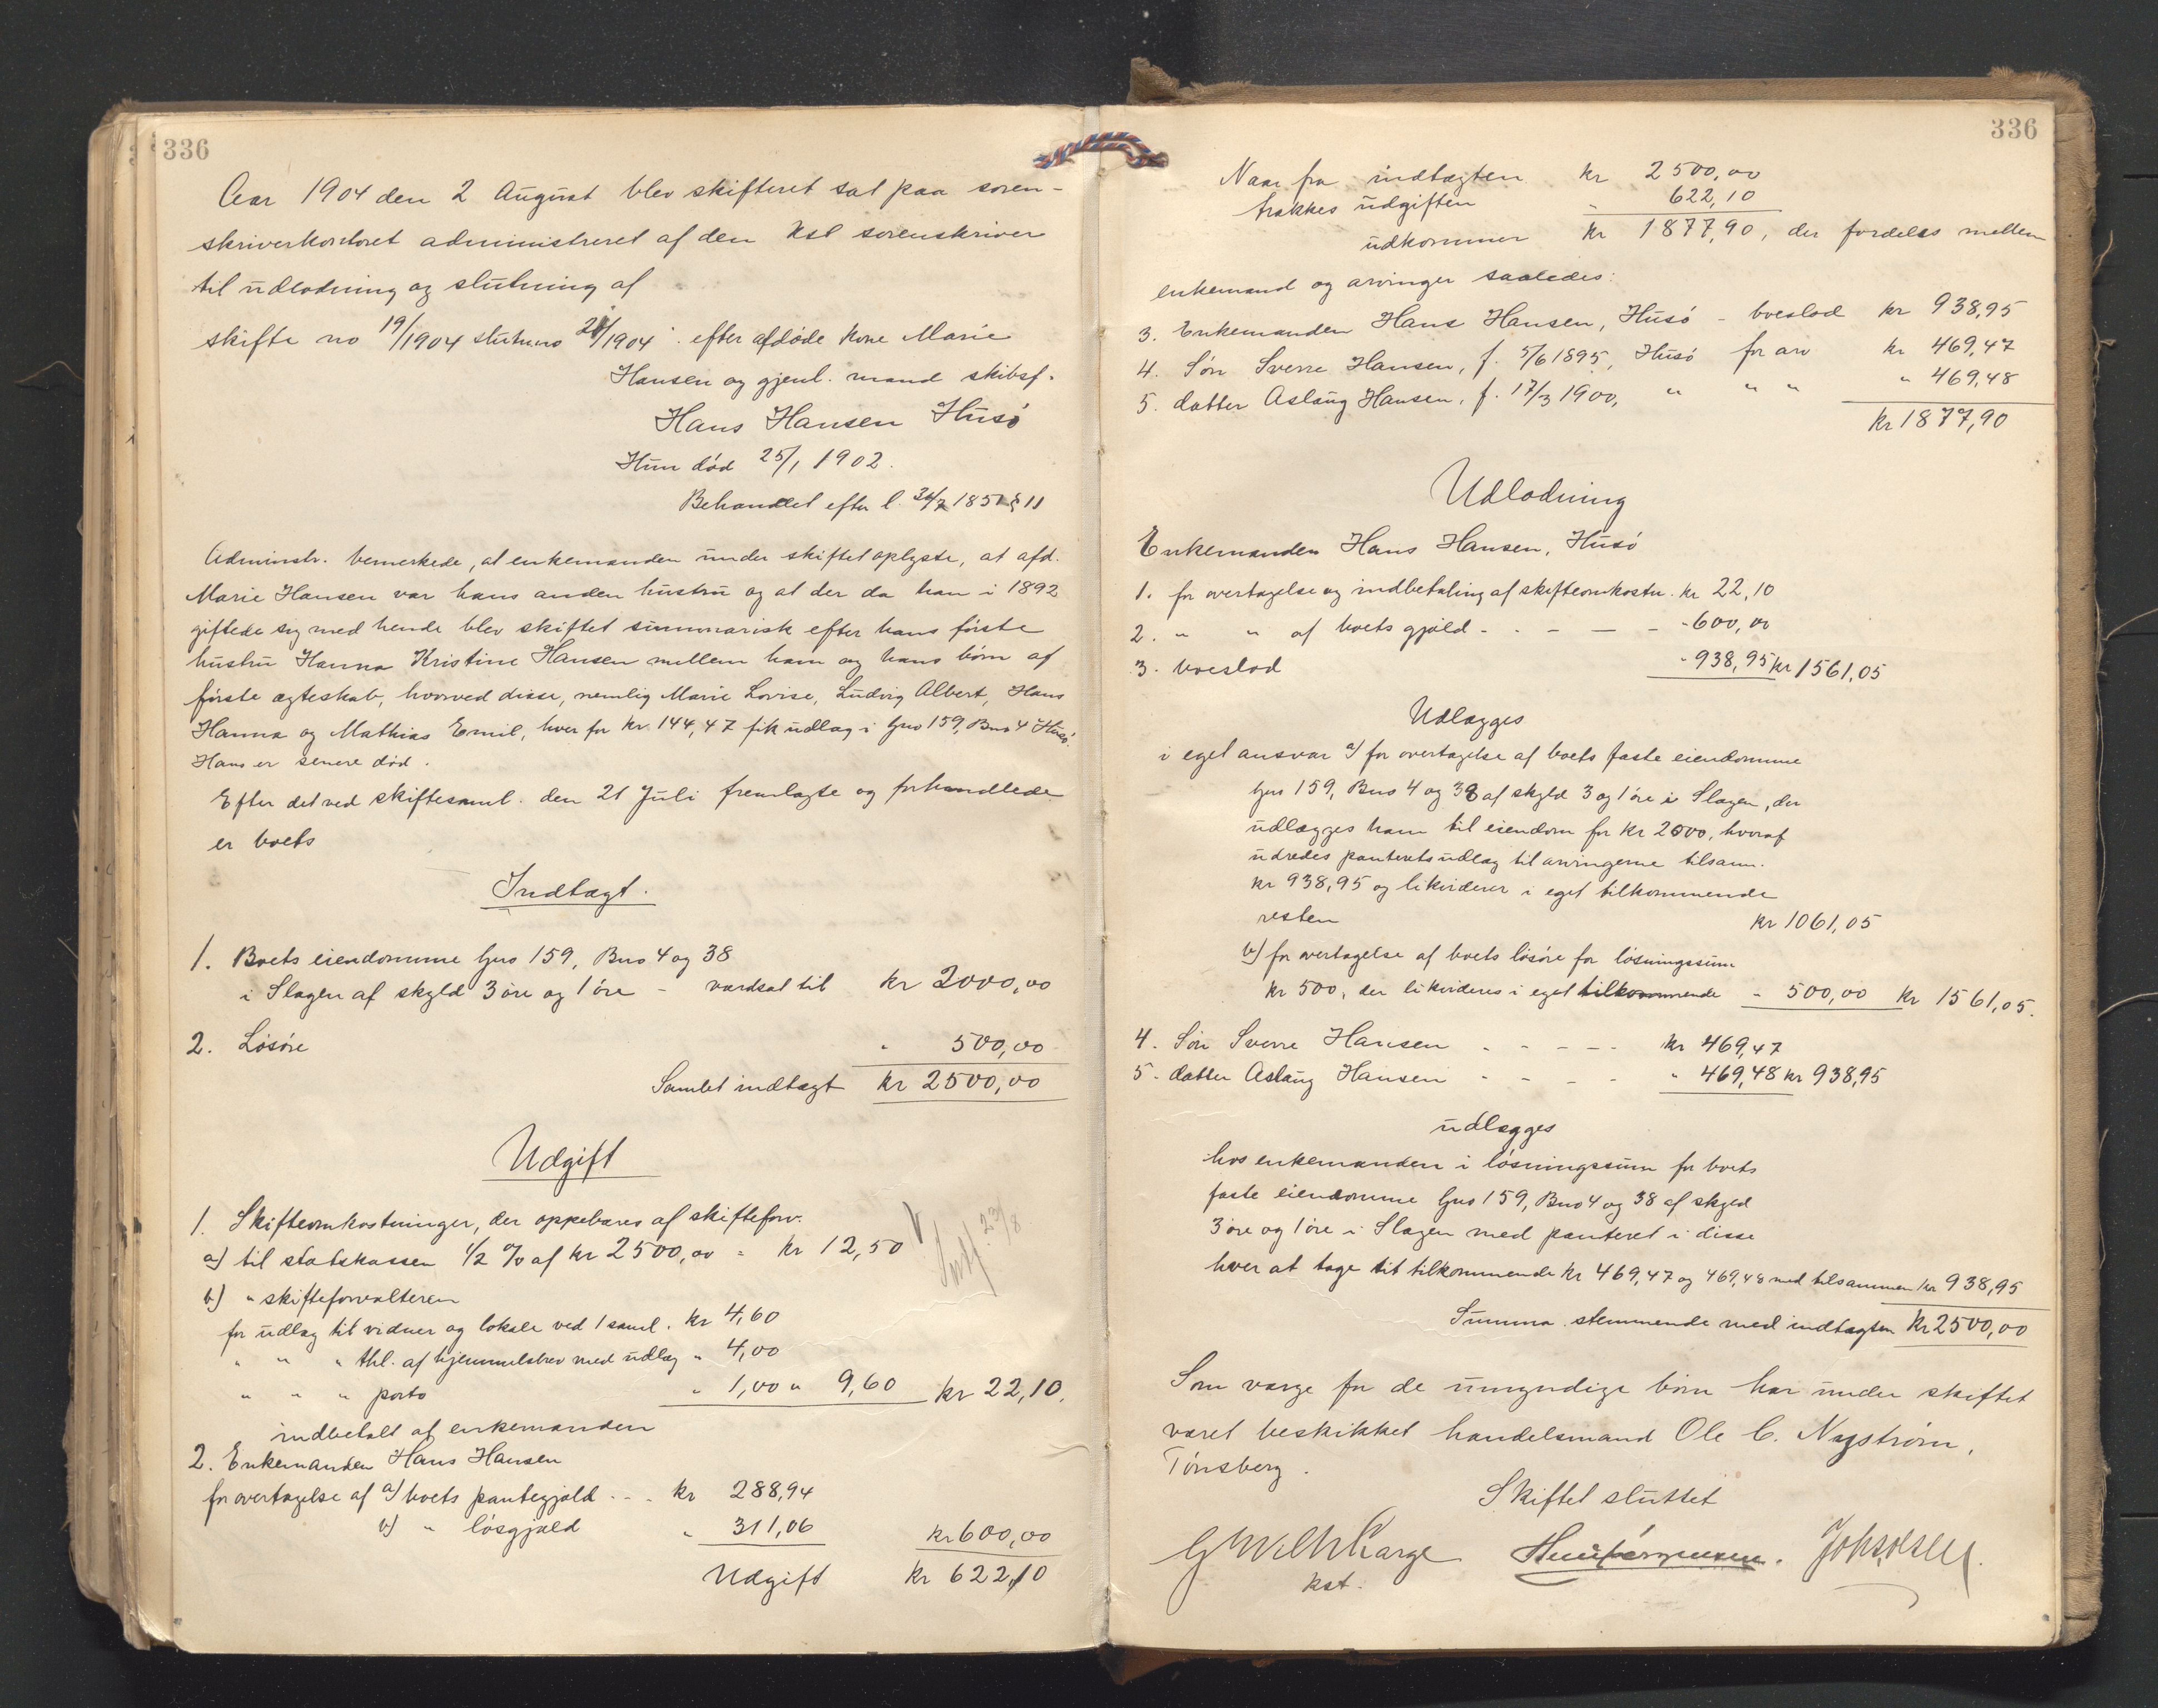 336
Aar 1904 den 2 August blev skifteret sat paa soren-
skriverkontoret administreret af den kst sorenskriver
til udlodning og slutning af
skifte no 19/1904 slutn no 21/1904 : efter afdøde kone Marie
Hansen og gjenl. mand skibsf.
Hans Hansen Husö
Hun död 25/1 1902.
Behandlet efter l. 1851 § 11
Adminstr. bemerkede, at enkemanden under skiftet oplyste, at afd.
Marie Hansen var hans anden hustru og at der da han i 1892
giftede sig med hende blev skiftet summarisk efter hans förste
hustru Hanna Kristine Hansen mellem ham og hans börn af
förste ægteskab, hvorved disse, nemlig Marie Lovise, Ludvig Albert, Hans
Hanna og Mathias Emil, hver for kr. 144,47 fik udlag i Gno 159, Bno 4 Husö.
Hans er senere död.
Efter det ved skiftesaml. den 21 Juli fremlagte og forhandlede
er boets
Indtægt.
1. Boets eiendomme Gno 159, Bno 4 og 38
i Slagen af skyld 3 öre og 1 öre - værdsat til kr 2000,00
2. Lösöre " 500,00
Samlet indtægt kr 2500,00
Udgift
1. Skifteomkostninger, der oppebæres af skifteforv.
a) til statskassen 1/2 % af kr 2500,00 = kr 12,50
23/8
b) " skifteforvalteren
for udlæg til vidner og lokale ved 1 saml. kr 4,60
" " " thl. af hjemmelsbrev med udlæg " 4,00
" " " porto " 1,00 " 9,60 kr 22,10.
indbetalt af enkemanden
2. Enkemanden Hans Hansen
for overtagelse af a) boets pantegjæld - - . kr 288,94
b) " lösgjæld " 311,06 kr 600,00
Udgift kr 622,10
336
Naar fra indtægten kr 2500,00
trækkes udgiften " 622,10
udkommer kr 1877,90, der fordeles mellem
enkemand og arvinger saaledes:
3. Enkemanden Hans Hansen, Husö - boeslod kr 938,95
4. Sön Sverre Hansen, f. 5/6 1895, Husö for arv kr 469,47
5. datter Aslaug Hansen, f. 17/3 1900, " " " " 469,48
kr 1877,90
Udlodning
Enkemanden Hans Hansen, Husö
1. for overtagelse og indbetaling af skifteomkostn. kr 22,10
2. " " af boets gjæld - - - - - " 600,00
3. boeslod " 938,95 kr 1561,05
Udlægges
i eget ansvar a) for overtagelse af boets faste eiendomme
Gno 159, Bno 4 og 38 af skyld 3 og 1 öre i Slagen, der
udlægges ham til eiendom for kr 2000, hvoraf
udredes panteretsudlæg til arvingerne tilsam.
kr 938,95 og likviderer i eget tilkommende
resten kr 1061,05
b) for overtagelse af boets lösöre for lösningssum
kr 500, der likvideres i eget tilkommende - 500,00 kr 1561,05.
4. Sön Sverre Hansen - - - - - kr 469,47
5. datter Aslaug Hansen - - - - " 469,48 kr 938,95
udlægges
hos enkemanden i lösningssum for boets
faste eiendomme Gno 159, Bno 4 og 38 af skyld
3 öre og 1 öre i Slagen med panteret i disse
hver at tage sit tilkommende kr 469,47 og 469,48 med tilsammen kr 938,95
Summa stemmende med indtægten kr 2500,00
Som værge for de umyndige börn har under skiftet
været beskikket handelsmand Ole C. Nyström,
Tönsberg.
Skiftet sluttet
kst.
Joh. Olsen.